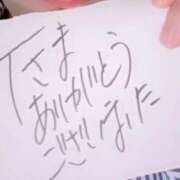 Tさま
ありがとう
ございました